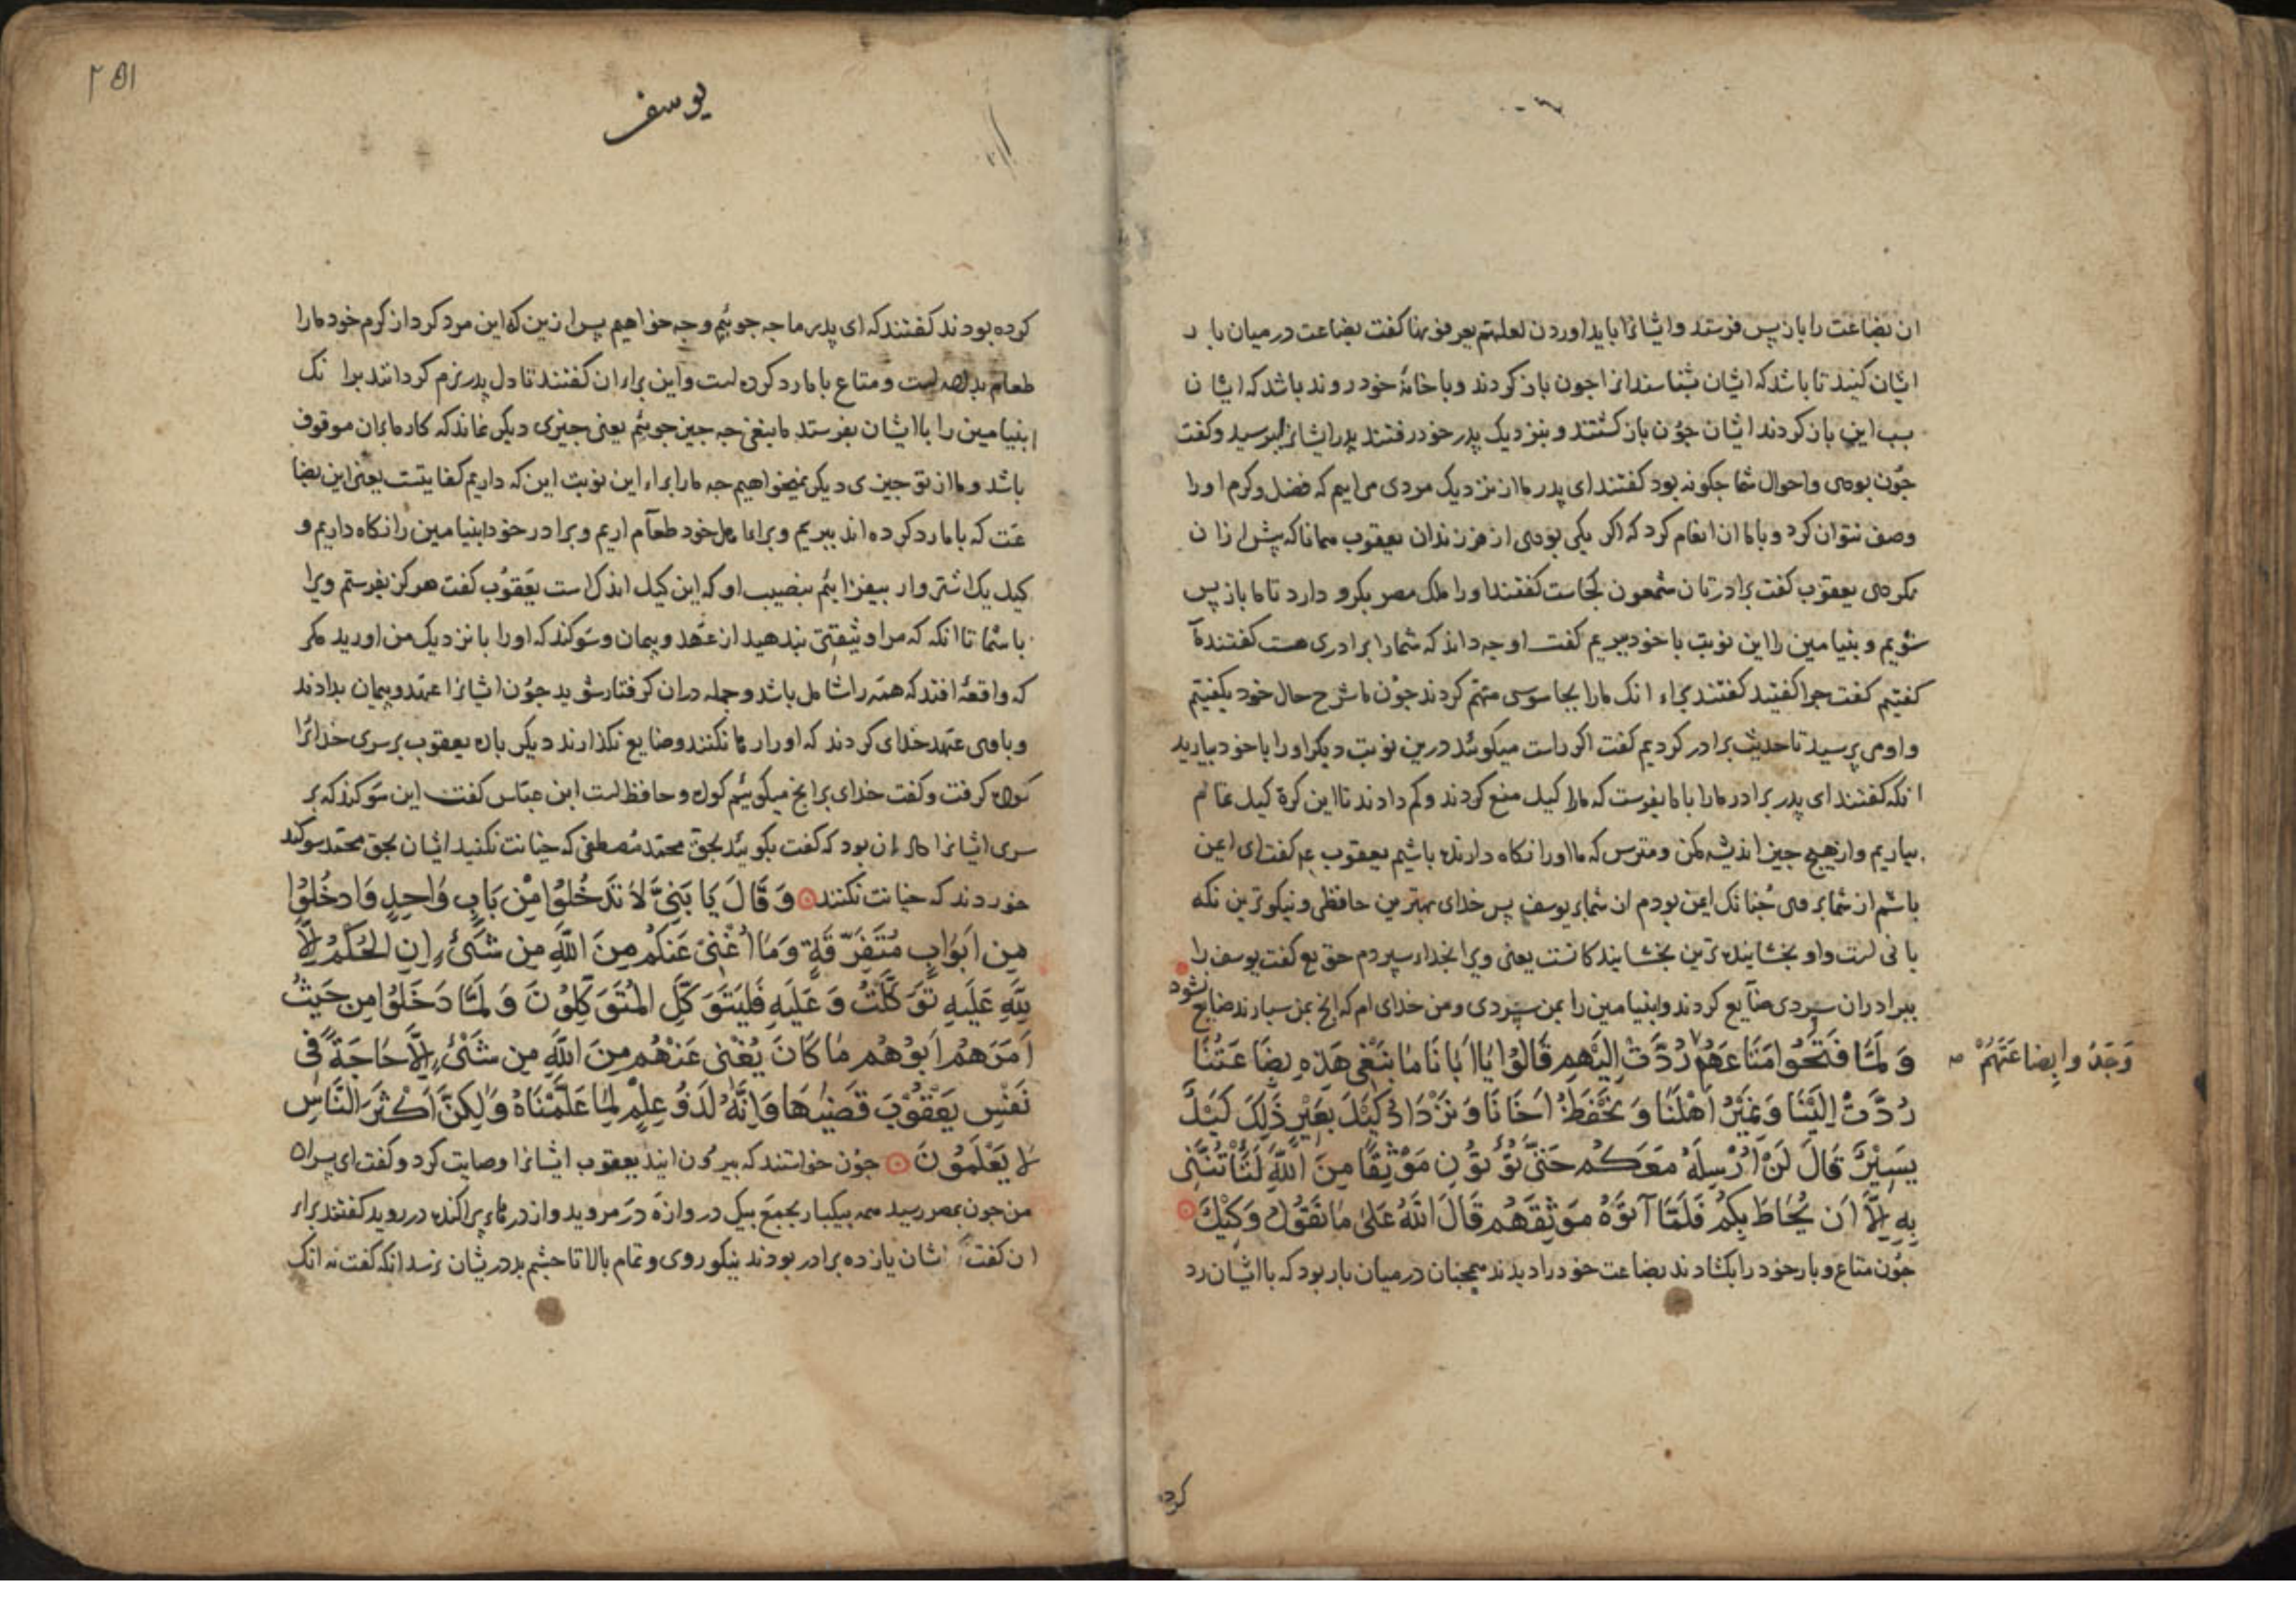 ان بضاعت را باز پس فرستد وایشانرا باید اوردن لعلهم یعرفونها کفت بضاعت در میان بار
ایشان کنید تا باشد که ایشان بشناسند انرا جون باز کردند وبا خانهٔ خود روند باشد که ایشان
این باز کردند ایشان جون باز کشتند و بنزدیک پدر خود رفتند پدر ایشانرا بپرسید وکفت
جون بودی واحوال شما جکونه بود کفتند ای پدر ما از نزدیک مردی می اییم که فضل وکرم اورا
وصف نتوان کرد وبا ما ان انعام کرد که اکر یکی بودی از فرزندان یعقوب همانا که پیش ازان
نکردی یعقوب کفت برادرتان شمعون کجاست کفتند اورا ملک مصر بکرو دارد تا ما باز پس
شویم و بنیامین را این نوبت با خود بریم کفت او جه داند که شمارا برادری هست کفتند ما
کفتیم کفت جرا کفتید کفتند براء انک مارا بجاسوسی متهم کردند جون ما شرح حال خود بکفتیم
واومی پرسید تا حدیث برادر کردیم کفت اکر راست میکوئید درین نوبت دیکر اورا با خود بیارید
انکه کفتند ای پدر برادر مارا با ما بفرست که مارا کیل منع کردند وکم دادند تا این کرة کیل تمام
بیاریم واز هیچ جیز اندیشه مکن ومترس که ما اورا نکاه دارنده باشیم یعقوب ع م کفت ای ایمن
باشم از شما بروی جنانک ایمن بودم از شما بر یوسف پس خدای بهترین حافظی ونیکوترین نکه
بانی است واو بخشاینده ترین بخشایندکانست یعنی ویرا بخدا سپردم حق تع کفت یوسف را
ببرادران سپردی ضایع کردند وابنیامین را بمن سپردی ومن خدای ام که انچ بمن سپارند ضایع نشود
وَلَمَّا فَتَحُوا مَتَاعَهُمْ رُدَّتْ اِلَیْهِمْ قَالُوْا یَا اَبَانَا مَا نَبْغِی هَذِهِ بِضَاعَتُنَا
وَجَدُوا بِضَاعَتَهُمْ صح
رُدَّتْ اِلَیْنَا وَنَمِیْرُ اَهْلَنَا وَنَحْفَظُ اَخَانَا وَنَزْدَادُ کَیْلَ بَعِیْرٍ ذٰلِکَ کَیْلٌ
یَسِیْرٌ قَالَ لَنْ اُرْسِلَهُ مَعَکُمْ حَتّٰی تُؤْتُوْنِ مَوْثِقًا مِنَ اللّٰهِ لَتَأْتُنَّنِی
بِهِ اِلَّا اَنْ یُحَاطَ بِکُمْ فَلَمَّا آتَوْهُ مَوْثِقَهُمْ قَالَ اللّٰهُ عَلٰی مَا نَقُوْلُ وَکِیْلٌ
جون متاع وبار خود را بکشادند بضاعت خود را دیدند همچنان در میان بار بود که با ایشان رد
کرده
۲۵۱
یوسف
کرده بودند کفتند که ای پدر ما جه جوئیم وجه خواهیم پس ازین که این مرد کرد از کرم خود مارا
طعام بداده است ومتاع با ما رد کرده است واین براء ان کفتند تا دل پدر نرم کردانند برانک
ابنیامین را با ایشان بفرستد ما نبغی جه جیز جوئیم یعنی جیزی دیکر نماند که کار ما بران موقوف
باشد وما از تو جیزی دیکر نمیخواهیم جه مارا براء این نوبت این که داریم کفایتست یعنی این بضا
عت که با ما رد کرده اند ببریم وبراء اهل خود طعام اریم وبرادر خود ابنیامین را نکاه داریم و
کیل یک اشتر وار بیفزائیم بنصیب او که این کیل اندک است یعقوب کفت هرکز نفرستم ویرا
با شما تا انکه که مرا وثیقتی بندهید از عهد وپیمان وسوکند که اورا با نزدیک من اورید مکر
که واقعهٔ افتد که همه را شامل باشد وجمله دران کرفتار شوید جون ایشانرا عهد وپیمان بدادند
وبا وی عهد خدای کردند که اورا رها نکنند وضایع نکذارند دیکر باره یعقوب برسری خدایرا
کواه کرفت وکفت خدای برانچ میکوئیم کواه وحافظ است ابن عباس کفت این سوکند که بر
سری ایشانرا داد ان بود که کفت بکوئید بحق محمد مصطفی که خیانت نکنید ایشان بحق محمد سوکند
خوردند که خیانت نکنند وَقَالَ یَا بَنِیَّ لَا تَدْخُلُوْا مِنْ بَابٍ وَاحِدٍ وَادْخُلُوْا
مِنْ اَبْوَابٍ مُتَفَرِّقَةٍ وَمَا اُغْنِی عَنْکُمْ مِنَ اللّٰهِ مِنْ شَیْءٍ اِنِ الْحُکْمُ اِلَّا
لِلّٰهِ عَلَیْهِ تَوَکَّلْتُ وَعَلَیْهِ فَلْیَتَوَکَّلِ الْمُتَوَکِّلُوْنَ وَلَمَّا دَخَلُوْا مِنْ حَیْثُ
اَمَرَهُمْ اَبُوْهُمْ مَا کَانَ یُغْنِی عَنْهُمْ مِنَ اللّٰهِ مِنْ شَیْءٍ اِلَّا حَاجَةً فِی
نَفْسِ یَعْقُوْبَ قَضٰیهَا وَاِنَّهُ لَذُوْ عِلْمٍ لِمَا عَلَّمْنَاهُ وَلٰکِنَّ اَکْثَرَ النَّاسِ
لَا یَعْلَمُوْنَ جون خواستند که بیرون ایند یعقوب ایشانرا وصایت کرد وکفت ای پسران
من جون بمصر رسید همه بیکبار بجمع بیک دروازه در مروید واز درهاء پراکنده در روید کفتند براء
ان کفت ایشان یازده برادر بودند نیکو روی وتمام بالا تا جشم بد در یشان نرسد انکه کفت نه انک